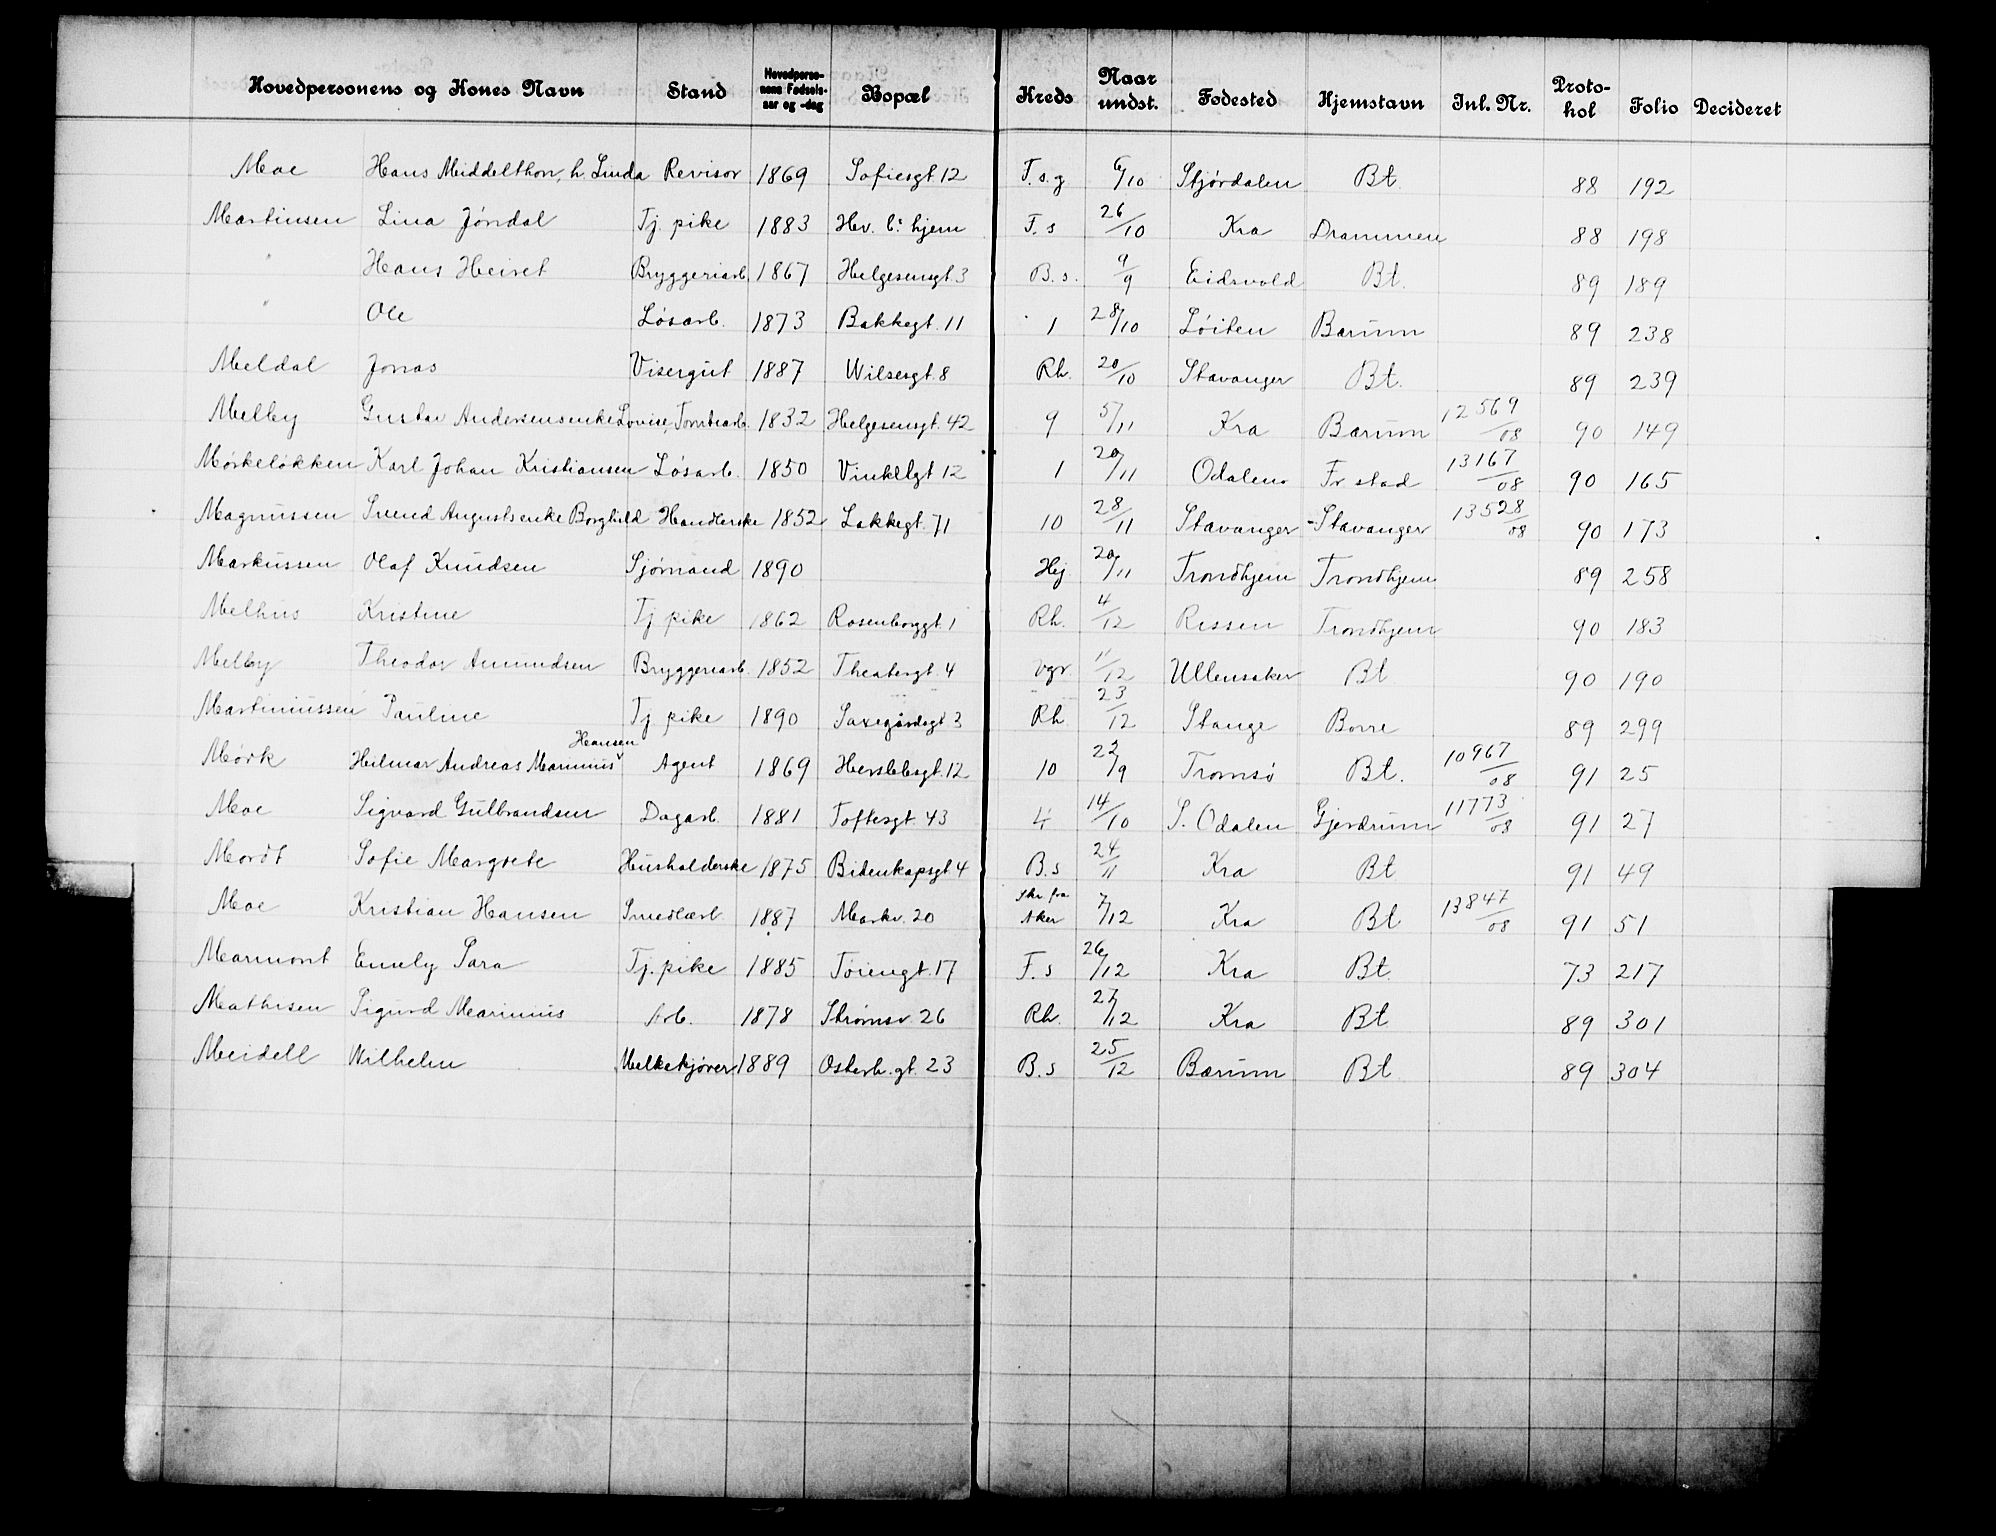 Hovedpersonens og Kones Navn Stand Hovedperso-nens Fødsels-aar og -dag Bopæl Kreds Naar undst. Fødested Hjemstavn Inl. Nr. Proto-kol Folio Decideret
Moe Hans Middelthon, h. Linda Revisor 1869 Sofiesgt. 12 T.s.g 6/10 Stjørdalen Bt. 88 192
Martinsen Lina Jøndal Tj. pike 1883 Hev. hjem F.s 26/10 Kra Drammen 88 198
" Hans Heivet Bryggeriarb. 1867 Helgesensgt. 3 B.s. 9/9 Eidsvold Bt. 89 189
" Ole Løsarb. 1873 Bakkegt. 11 1 28/10 Løiten Bærum 89 238
Meldal Jonas Visergut 1887 Wilsesgt. 8 Rh. 20/10 Stavanger Bt. 89 239
Melby Gustav Andersens enke Lovise, Tomtearb. 1832 Helgesensgt. 42 9 5/11 Kra Bærum 12569/08 90 149
Mørkeløkken Karl Johan Kristiansen Løsarb. 1850 Vinkelgt 12 1 20/11 Odalen Fr.stad 13167/08 90 165
Magnussen Svend Augusts enke Borghild Handlerske 1852 Lakkegt. 71 10 28/11 Stavanger Stavanger 13528/08 90 173
Markussen Olaf Knudsen Sjømand 1890 Hej 20/11 Trondhjem Trondhjem 89 258
Melhus Kristine Tj pike 1862 Rosenborggt. 1 Rh. 4/12 Rissen Trondhjem 90 183
Melby Theodor Amundsen Bryggeriarb. 1852 Theatergt. 4 Vgr. 11/12 Ullensaker Bt 90 190
Martiniussen Pauline Tj pike 1890 Saxegårdsgt 3 Rh 23/12 Stange Borre 89 299
Mørk Hilmar Andreas Marinius Hansen Agent 1869 Herslebsgt. 12 10 22/9 Tromsø Bt. 10967/08 91 25
Moe Sigvard Gulbrandsen Dagarb. 1881 Toftesgt. 43 4 14/10 S. Odalen Gjerdrum 11773/08 91 27
Mordt Sofie Margrete Husholderske 1875 Bidenkapsgt 4 B.s 24/11 Kra Bt 91 49
Moe Kristian Hansen Smedlærl. 1887 Markv. 20 Skr fra Aker 7/12 Kra Bt 13847/08 91 51
Marmont Emely Sara Tj. pike 1885 Tøiengt. 17 F.s 26/12 Kra Bt. 73 217
Mathisen Sigurd Marinius Arb. 1878 Strømsv. 26 Rh. 27/12 Kra Bt 89 301
Meidell Wilhelm Melkekjører 1889 Osterh.gt. 23 B.s 25/12 Bærum Bt 89 304